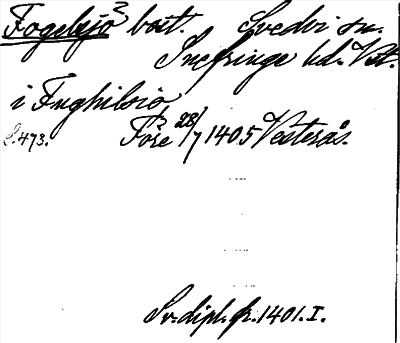 Fogelsjö 2 bost. Svedvi sn.
Snefringe hd. Vst.
i Fughilsiø
S. 473. Före 28/7 1405 Vesterås.
Sv. dipl. fr. 1401. I.